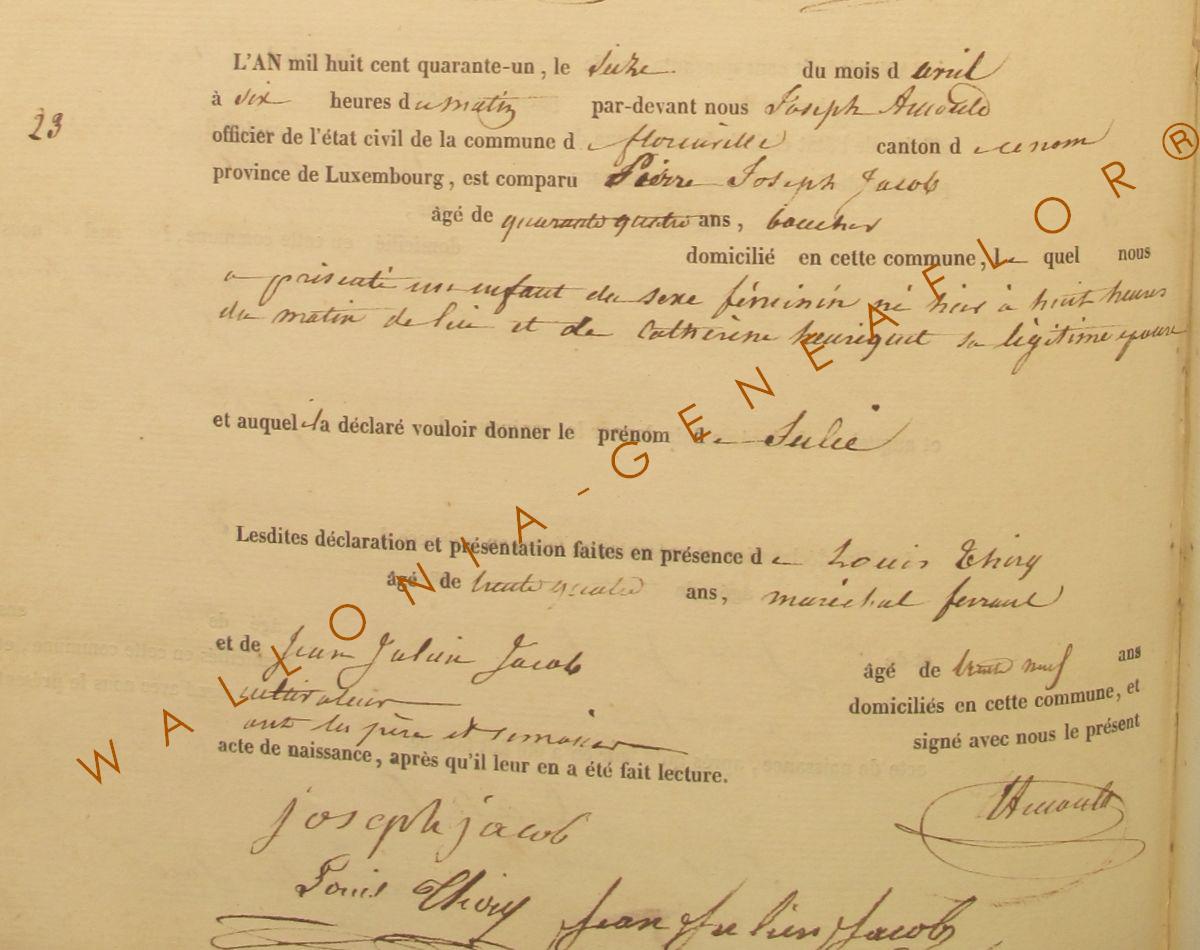 23
L'AN mil huit cent quarante-un, le seize du mois d avril
à six heures du matin par-devant nous Joseph Arnould
officier de l'état civil de la commune d e florenville canton d e ce nom
province de Luxembourg, est comparu Pierre Joseph Jacob
âgé de quarante quatre ans, boucher
domicilié en cette commune, le quel nous
a présenté un enfant du sexe féminin né hier à huit heures
du matin de lui et de Catherine henriquet sa légitime epouse
et auquel il a déclaré vouloir donner le prénom de Julie
Lesdites déclaration et présentation faites en présence d e Louis Thiry
âgé de trente quatre ans, maréchal ferrant
et de Jean Julien Jacob âgé de trente neuf ans
cultivateur domiciliés en cette commune, et
ont les père et signé avec nous le présent
acte de naissance, après qu'il leur en a été fait lecture.
joseph jacob Arnould
Louis Thiry Jean Julien Jacob
WALLONIA-GENEAFLOR®